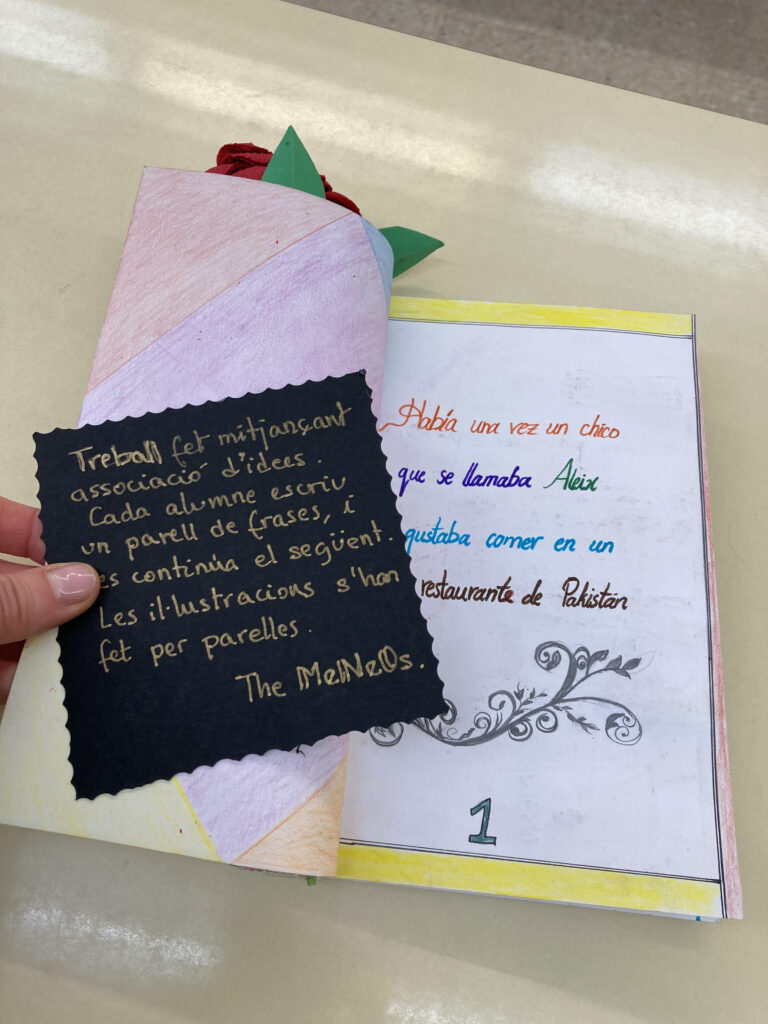 Treball fet mitjançant
associació d'idees.
Cada alumne escriu
un parell de frases, i
es continúa el següent.
Les il·lustracions s'han
fet per parelles.
The MeINeOs.
Había una vez un chico
que se llamaba Aleix
gustaba comer en un
restaurante de Pakistán
1